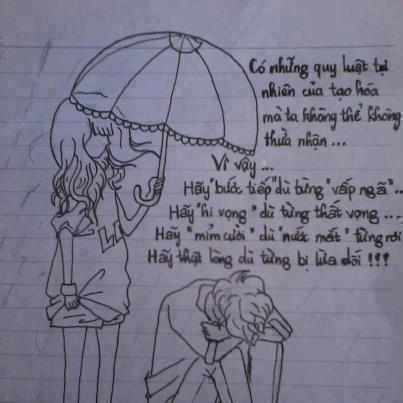 Có những quy luật tự
nhiên của tạo hóa
mà ta không thể không
thừa nhận ...
Vì vậy ...
Hãy "bước tiếp" dù từng "vấp ngã" ...
Hãy "hi vọng" dù từng thất vọng ...
Hãy "mỉm cười" dù "nước mắt" từng rơi
Hãy thật lòng dù từng bị lừa dối !!!